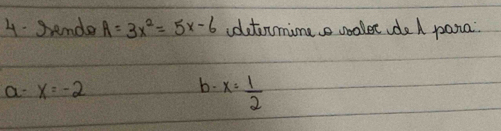 4- Sendo A = 3x² = 5x - 6 determine o valor de A para:
a- x = -2 b- x = 1/2